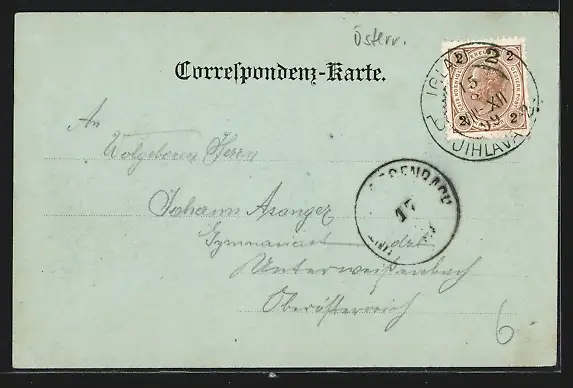 Österr.
Correspondenz-Karte.
2 2 2
2 2
IGLAU
XII
99
JIHLAVA
An
Wolgeboren Herrn
Johann Asanger
Gymnasiast
Unterweißenbach
Oberösterreich
17
6